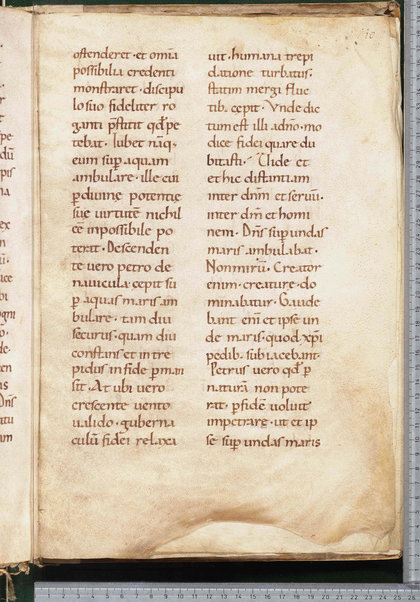 ostenderet · et om̅ia
possibilia credenti
monstraret · discipu
lo suo fideliter ro
ganti p̅stitit qd̅ pe
tebat · Iubet náq;
eum sup̲ aquam
ambulare · ille cui
p̲ diuinę potentię
suę uirtutē nichil
ēē inpossibile po
terat · Descenden
te uero petro de
nauicula · cepit su
p̲ aquas maris am
bulare · tam diu
securus · quam diu
constans et intre
pidus in fide p̲man
sit · At ubi uero
crescente uento
ualido · guberna
culū fidei relaxa
uit · humana trepi
datione turbatus ·
statim mergi fluc
tib; cepit · Vnde dic
tum est illi a dn̅o · mo
dice fidei quare du
bitasti · Uide et
et hic distantiam
inter dnm̅ et seruū ·
inter dnm̅ et homi
nem · Dn̅s sup̲ undas
maris ambulabat ·
Non mirū · Creator
enim · creaturę · do
minabatur · Gaude
bant eni̅ et ipsę un
dę maris · quod xp̅i
pedib; subiacebant ·
Petrus uero qd̅ p̲
naturā non pote
rat · p̲ fidē uoluit
impetrare · ut et ip
se sup̲ undas maris